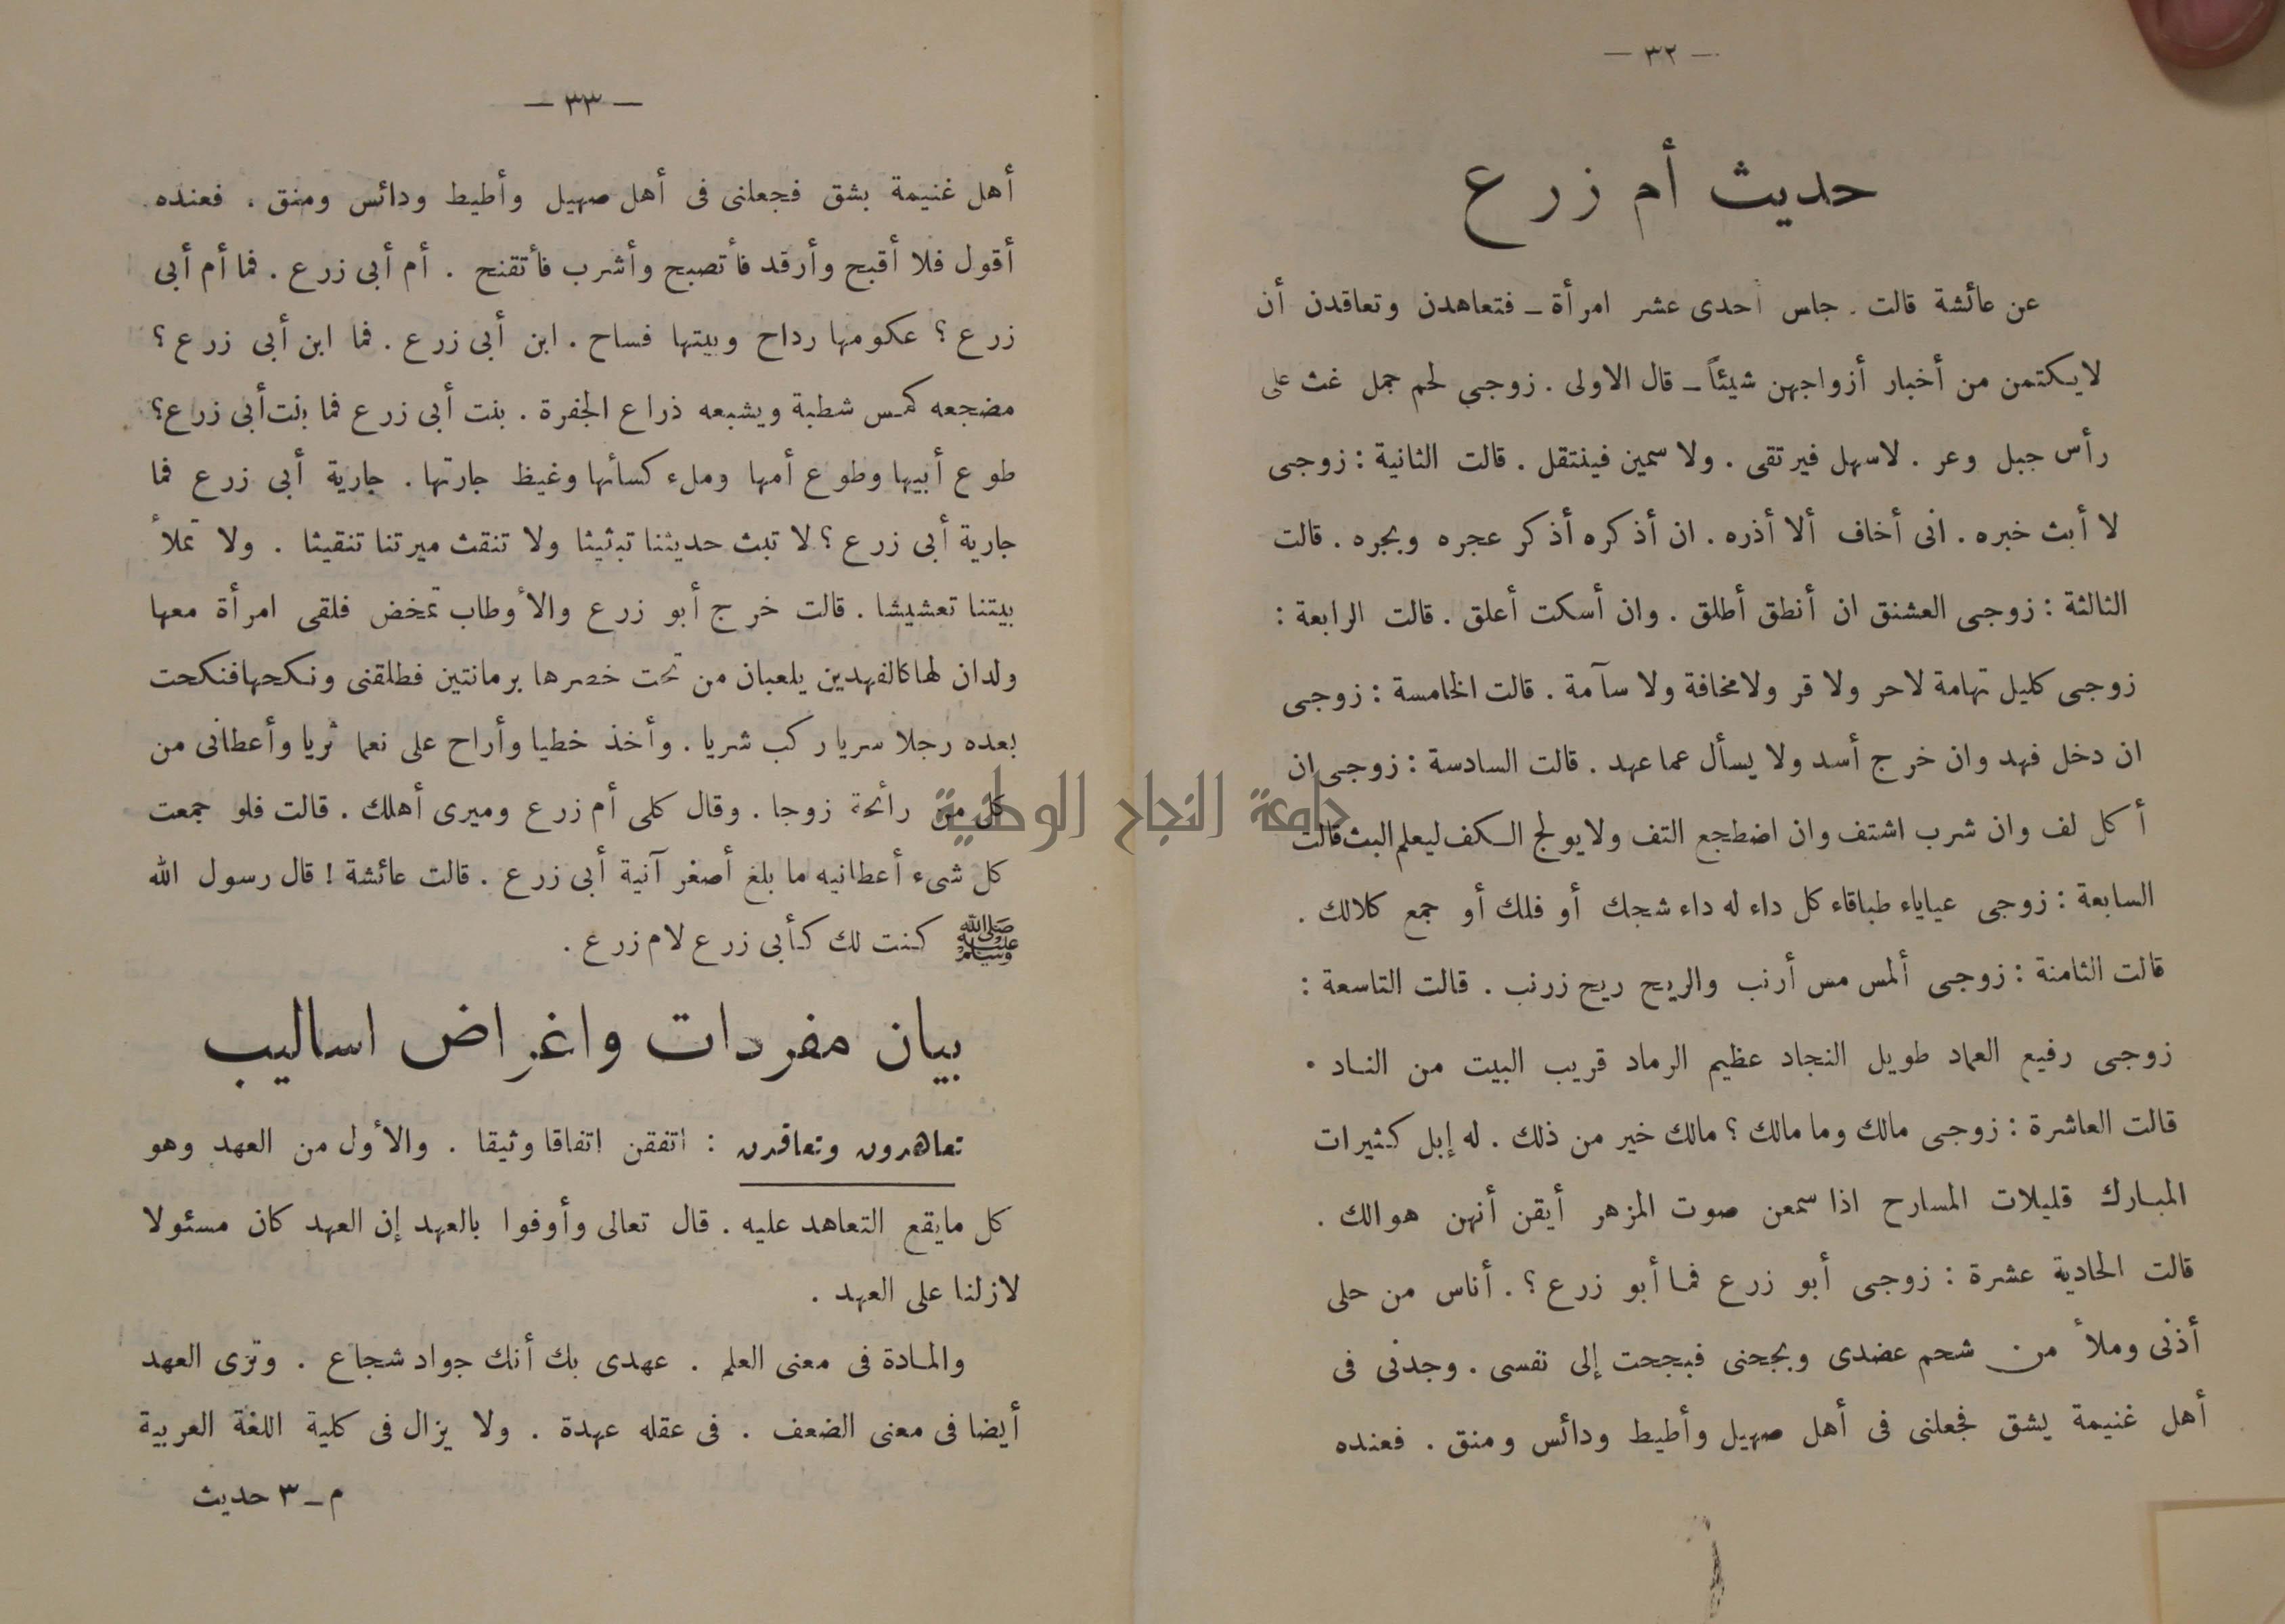 — ٣٢ —
حديث أم زرع
عن عائشة قالت . جلس احدى عشر امرأة ـ فتعاهدن وتعاقدن أن
لا يكتمن من أخبار أزواجهن شيئاً ـ قال الاولى . زوجى لحم جمل غث على
رأس جبل وعر . لاسهل فيرتقى . ولا سمين فينتقل . قالت الثانية : زوجى
لا أبث خبره . انى أخاف ألا أذره . ان أذكره أذكر عجره وبجره . قالت
الثالثة : زوجى العشنق ان أنطق أطلق . وان أسكت أعلق . قالت الرابعة :
زوجى كليل تهامة لاحر ولا قر ولا مخافة ولا سآمة . قالت الخامسة : زوجى
ان دخل فهد وان خرج أسد ولا يسأل عما عهد . قالت السادسة : زوجى ان
أكل لف وان شرب اشتف وان اضطجع التف ولا يولج الكف ليعلم البث قالت
السابعة : زوجى عياياء طباقاء كل داء له داء شجك أو فلك أو جمع كلالك .
قالت الثامنة : زوجى ألمس مس أرنب والريح ريح زرنب . قالت التاسعة :
زوجى رفيع العماد طويل النجاد عظيم الرماد قريب البيت من الناد .
قالت العاشرة : زوجى مالك وما مالك ؟ مالك خير من ذلك . له إبل كثيرات
المبارك قليلات المسارح اذا سمعن صوت المزهر أيقن أنهن هوالك .
قالت الحادية عشرة : زوجى أبو زرع فما أبو زرع ؟ . أناس من حلى
أذنى وملأ من شحم عضدى وبجحنى فبجحت إلى نفسى . وجدنى فى
أهل غنيمة يشق فجعلنى فى أهل صهيل وأطيط ودائس ومنق . فعنده
— ٣٣ —
أهل غنيمة بشق فجعلنى فى أهل صهيل وأطيط ودائس ومنق . فعنده
أقول فلا أقبح وأرقد فأتصبح وأشرب فأتقنح . أم أبى زرع . فما أم أبى
زرع ؟ عكومها رداح وبيتها فساح . ابن أبى زرع . فما ابن أبى زرع ؟
مضجعه كمس شطبة ويشبعه ذراع الجفرة . بنت أبى زرع فما بنت أبى زرع؟
طوع أبيها وطوع أمها وملء كسائها وغيظ جارتها . جارية أبى زرع فما
جارية أبى زرع ؟ لا تبث حديثنا تبثيثا ولا تنقث ميرتنا تنقيثا . ولا تملأ
بيتنا تعشيشا . قالت خرج أبو زرع والأوطاب تمخض فلقى امرأة معها
ولدان لها كالفهدين يلعبان من تحت خصرها برمانتين فطلقنى ونكحها فنكحت
بعده رجلا سريا ركب شريا . وأخذ خطيا وأراح على نعما ثريا وأعطانى من
كل من رائحة زوجا . وقال كلى أم زرع وميرى أهلك . قالت فلو جمعت
كل شىء أعطانيه ما بلغ أصغر آنية أبى زرع . قالت عائشة ! قال رسول الله
ﷺ كنت لك كأبى زرع لام زرع .
بيان مفردات واغراض اساليب
تعاهدون وتعاقدن : اتفقن اتفاقا وثيقا . والأول من العهد وهو
كل مايقع التعاهد عليه . قال تعالى وأوفوا بالعهد إن العهد كان مسئولا
لازلنا على العهد .
والمادة فى معنى العلم . عهدى بك أنك جواد شجاع . وترى العهد
أيضا فى معنى الضعف . فى عقله عهدة . ولا يزال فى كلية اللغة العربية
م ـ ٣ حديث
جامعة النجاح الوطنية